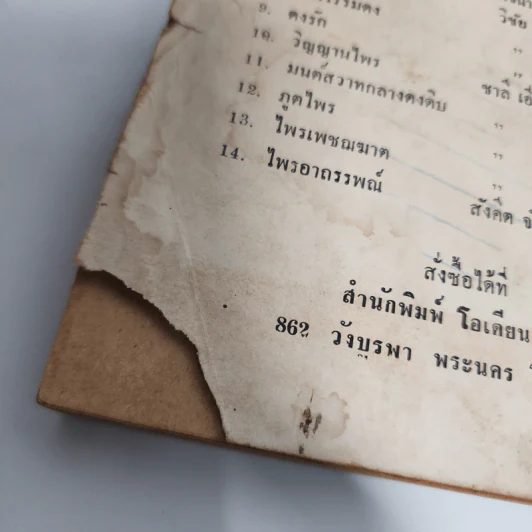 9. ดงรัก วิชัย
10. วิญญาณไพร ,,
11. มนต์สวาทกลางดงดิบ ชาลี เอี่
12. ภูตไพร ,,
13. ไพรเพชฌฆาต ,,
14. ไพรอาถรรพณ์ สังคีต จั
สั่งซื้อได้ที่
สำนักพิมพ์ โอเดียน
862 วังบูรพา พระนคร